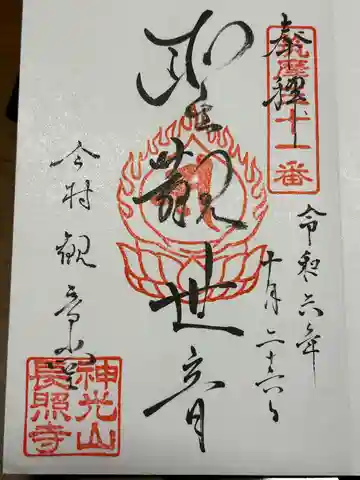 奉禮
筑摩十一番
令和六年
十月二十六日
聖観世音
今村観音堂
神光山
長照寺